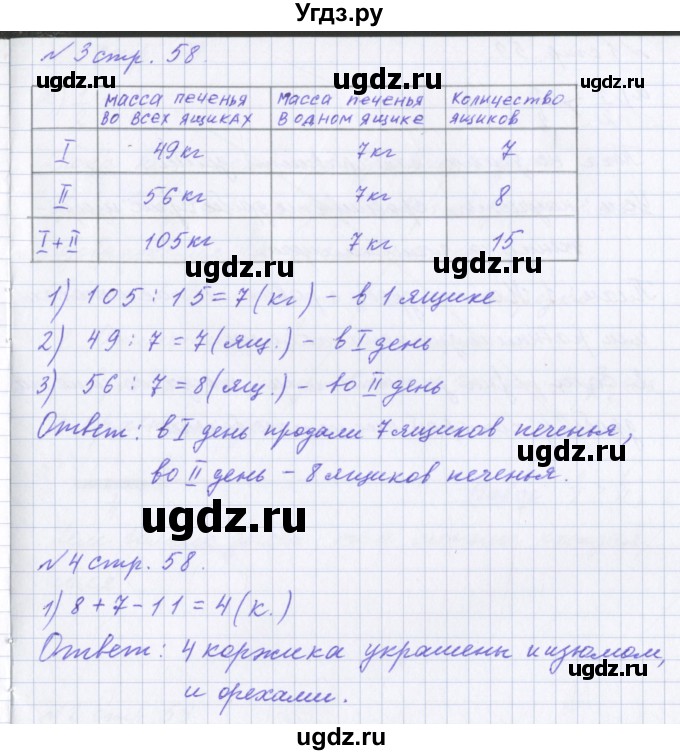 Угдз.ру
№3 стр. 58.
масса печенья во всех ящиках | масса печенья в одном ящике | количество ящиков
I | 49кг | 7кг | 7
ugdz.ru
II | 56кг | 7кг | 8
I+II | 105кг | 7кг | 15
ugdz.ru ugdz.ru
1) 105 : 15 = 7 (кг) - в 1 ящике
2) 49 : 7 = 7 (ящ.) - в I день
3) 56 : 7 = 8 (ящ.) - во II день
Ответ: в I день продали 7 ящиков печенья,
ugdz.ru
во II день - 8 ящиков печенья.
ugdz.ru
№4 стр. 58.
1) 8 + 7 - 11 = 4 (к.)
Ответ: 4 коржика украшены изюмом,
ugdz.ru
и орехами.
ugdz.ru